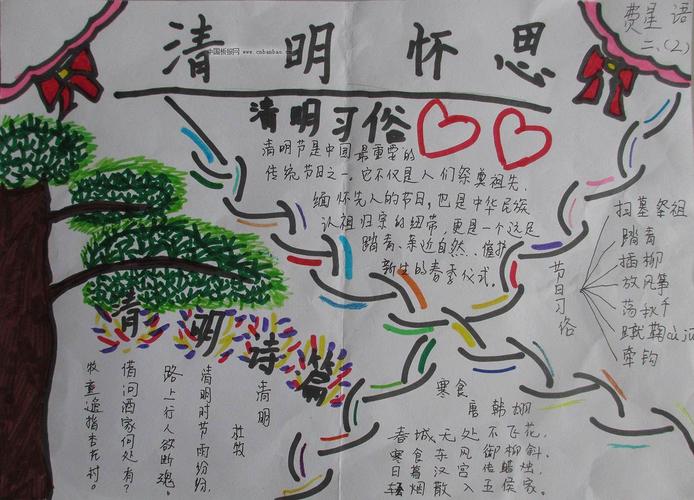 清明怀思
费星语
二、(2)
中国板报网 www.cnbanbao.cn
清明习俗
清明节是中国最重要的
传统节日之一。它不仅是人们祭奠祖先、
缅怀先人的节日,也是中华民族
认祖归宗的纽带,更是一个远足
踏青、亲近自然、催护
新生的春季仪式。
节日习俗
扫墓祭祖
踏青
插柳
放风筝
荡秋千
蹴鞠
牵钩
清明诗篇
清明
杜牧
清明时节雨纷纷,
路上行人欲断魂。
借问酒家何处有?
牧童遥指杏花村。
寒食
唐 韩翃
春城无处不飞花,
寒食东风御柳斜。
日暮汉宫传蜡烛,
轻烟散入五侯家。